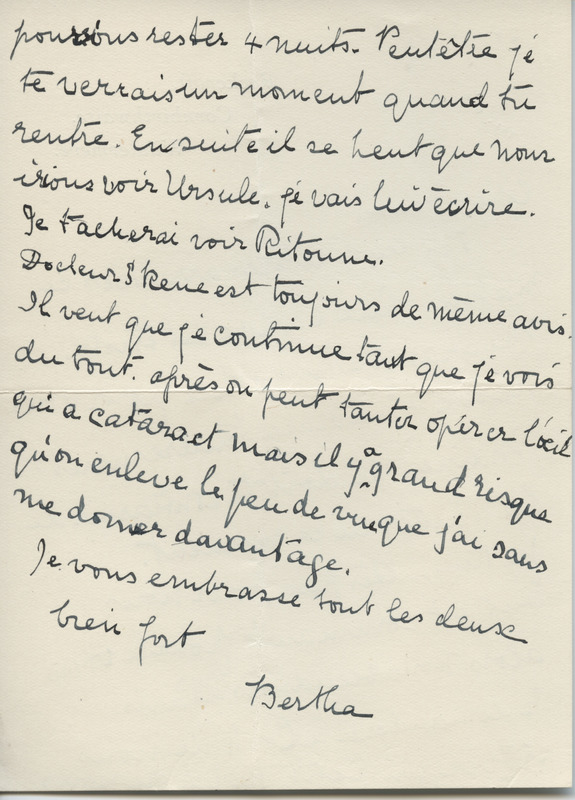 pourrions rester 4 nuits. Peutêtre je
te verrais un moment quand tu
rentre. Ensuite il se peut que nous
irions voir Ursule. je vais lui écrire.
Je tacherai voir Ritonne.
Docteur Skene est toujours de même avis.
Il veut que je continue tant que je vois
du tout. après on peut tanter opérer l'œil
qui a cataract mais il y a grand risque
qu'on enleve le peu de vue que j'ai sans
me donner davantage.
Je vous embrasse tout les deux
bien fort
Bertha